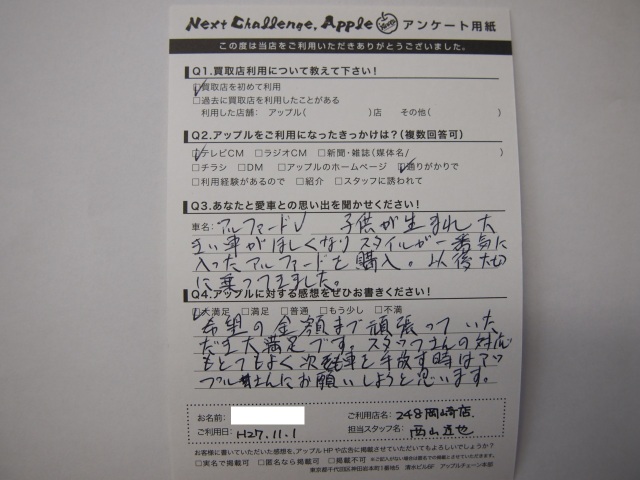 Next Challenge. Apple アンケート用紙
この度は当店をご利用いただきありがとうございました。
Q1.買取店利用について教えて下さい!
□買取店を初めて利用
□過去に買取店を利用したことがある
利用した店舗: アップル( )店 その他( )
Q2.アップルをご利用になったきっかけは?(複数回答可)
□テレビCM □ラジオCM □新聞・雑誌(媒体名/ )
□チラシ □DM □アップルのホームページ □通りがかりで
□利用経験があるので □紹介 □スタッフに誘われて
Q3.あなたと愛車との思い出を聞かせください!
車名: アルファードV 子供が生まれ大
きい車がほしくなりスタイルが一番気に
入ったアルファードを購入。以後大切
に乗ってきました。
Q4.アップルに対する感想をぜひお書きください!
□大満足 □満足 □普通 □もう少し □不満
希望の金額まで頑張っていた
だき大満足です。スタッフさんの対応
もとてもよく次も車を手放す時はアッ
プルさんにお願いしようと思います。
お名前: ご利用店名: 248岡崎店.
ご利用日: H27.11.1 担当スタッフ名: 西山直也
お客様に書いていただいた感想を、アップルHPや広告に掲載させていただいてもよろしいでしょうか?
□実名で掲載可 □匿名なら掲載可 □掲載不可 ※ご記入がない場合は匿名での掲載とさせていただきます。
東京都千代田区神田岩本町1番地5 清水ビル6F アップルチェーン本部